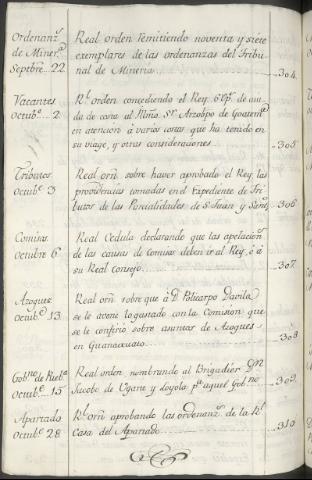 Ordenanz.^s Real orden remitiendo noventa y siete
de Miner.^a exemplares de las ordenanzas del Tribu-
Septbre..22 nal de Mineria......304.
Vacantes R.^l orden concediendo el Rey 6@ p.^s de aiu
Octub.^e...2 da de costa al Illmo. S.^or Arzobpo de Goatem.^a
en atencion á varios costos que ha tenido en
su viage, y otras consideraciones......305.
Tributos Real orn̄. sobre haver aprobado el Rey las
Octub.^e 3 providencias tomadas en el Expediente de Tri
butos de las Parcialidades de S.^n Juan y Sant.^o 306
Comisos Real Cedula declarando que las apelacion.^s
Octubre 6 de las causas de Comisos deben ir al Rey, ó á
su Real consejo......307.
Azogues Real orn̄. sobre que á D. Policarpo Davila
Octub.^e 13 se le avone lo gastado con la Comision que
se le confirió sobre asuntos de Azogues
en Guanaxuato......308
Gob.^no de Pueb.^a Real orden nombrando al Brigadier D.^n
Octub.^e 15 Jacobo de Ugarte y Loyola p.^a aquel Gob.^no 309.
Apartado R.^l Orn̄. aprobando las ordenanz.^s de la R.^l
Octub.^e 28 Casa del Apartado......310